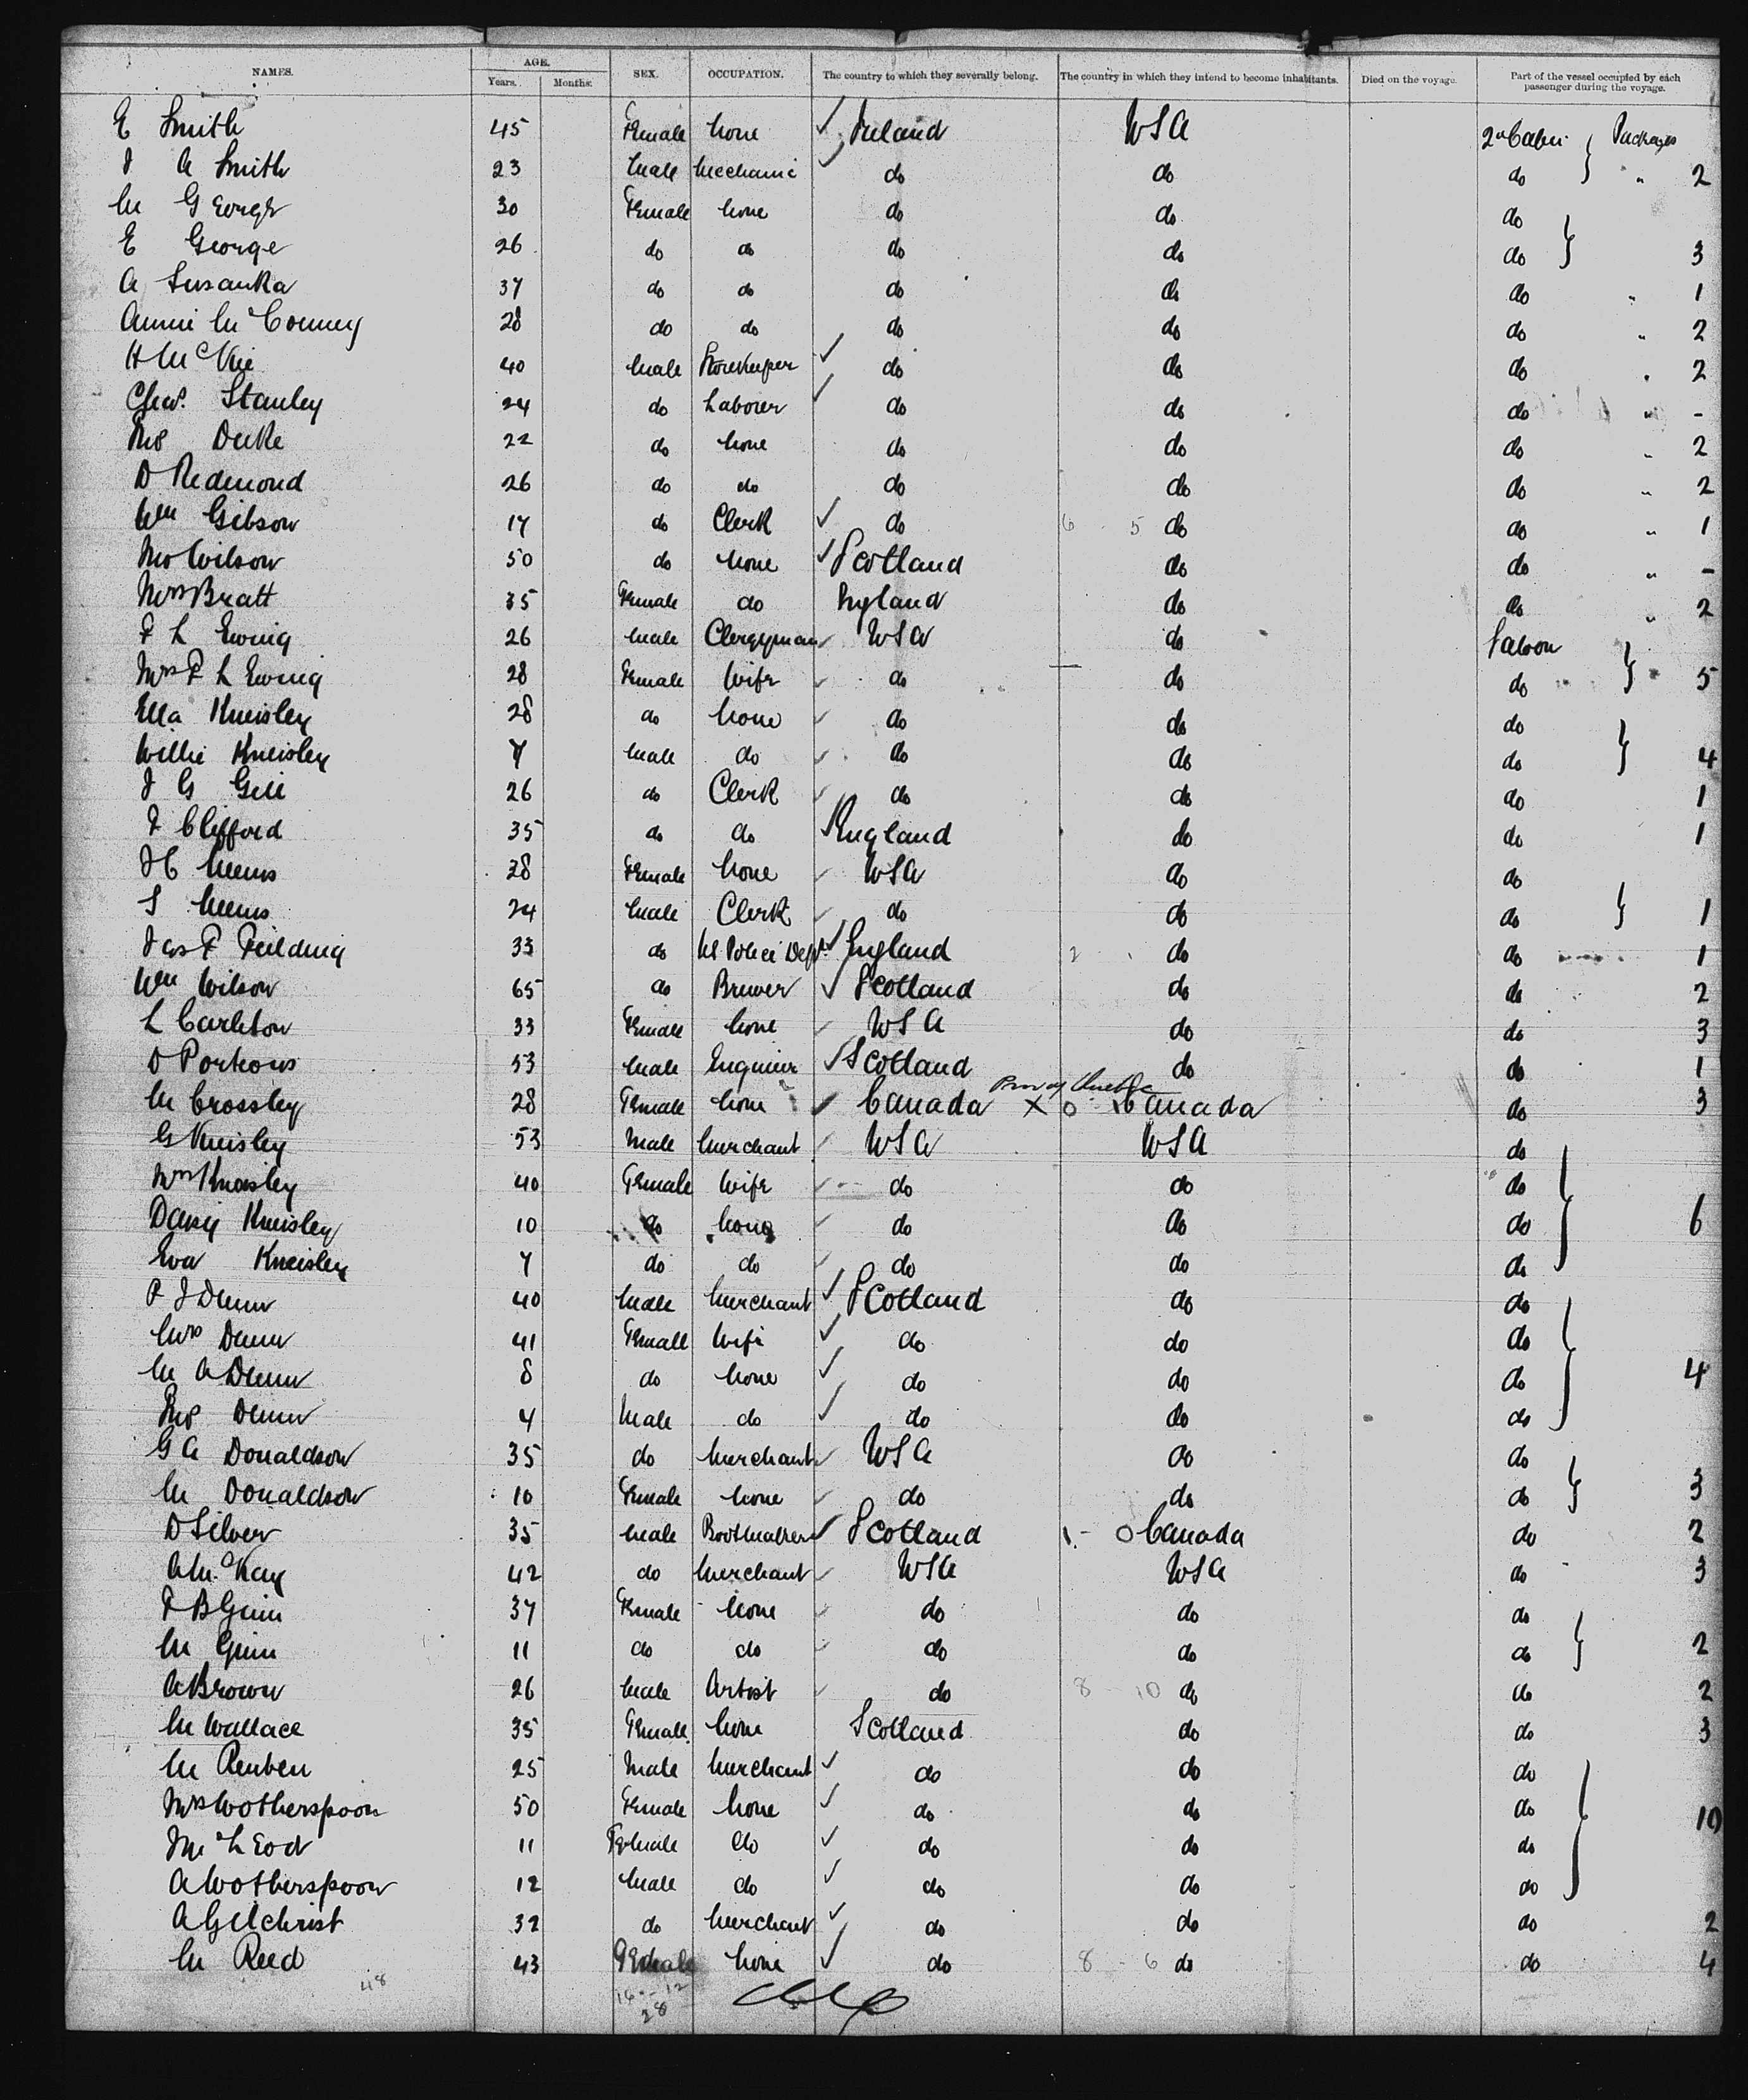 NAMES. AGE. SEX. OCCUPATION. The country to which they severally belong. The country in which they intend to become inhabitants. Died on the voyage. Part of the vessel occupied by each passenger during the voyage.
Years. Months.
E Smith 45 Female None Ireland USA 2nd Cabin Packages
J A Smith 23 Male Mechanic do do do " 2
M George 30 Female None do do do
E George 26 do do do do do 3
A Susanka 37 do do do do do " 1
Annie McConney 28 do do do do do " 2
H McVie 40 Male Storekeeper do do do " 2
Chas. Stanley 24 do Laborer do do do " -
Thos Duke 22 do None do do do " 2
D Redmond 26 do do do do do " 2
Wm Gibson 17 do Clerk do 6 - 5 do do " 1
Wilson 50 do None Scotland do do " -
Mrs Bratt 35 Female do England do do " 2
F L Ewing 26 Male Clergyman USA do Saloon
Mrs F L Ewing 28 Female Wife do do do 5
Ella Kneisley 28 do None do do do
Willie Kneisley 7 Male do do do do 4
J G Gill 26 do Clerk do do do 1
J Clifford 35 do do England do do 1
J C Mems 28 Female None USA do do
S Mems 24 Male Clerk do do do 1
Jas F Feilding 33 do US Police Dept England 2 do do 1
Wm Wilson 65 do Brewer Scotland do do 2
L Carleton 33 Female None USA do do 3
D Porteous 53 Male Engineer Scotland do do 1
Prov of Quebec
M Crossley 28 Female None Canada X 0 Canada do 3
G Kneisley 53 Male Merchant USA USA do
Mrs Kneisley 40 Female Wife do do do
Daisy Kneisley 10 do None do do do 6
Eva Kneisley 7 do do do do do
P J Dunn 40 Male Merchant Scotland do do
Mrs Dunn 41 Female Wife do do do
M A Dunn 8 do None do do do 4
Thos Dunn 4 Male do do do do
G A Donaldson 35 do Merchant USA do do
M Donaldson 10 Female None do do do 3
D Silver 35 Male Bootmaker Scotland 1 - 0 Canada do 2
A McKay 42 do Merchant USA USA do 3
J B Guin 37 Female None do do do
M Guin 11 do do do do do 2
A Brown 26 Male Artist do 8 - 10 do do 2
M Wallace 35 Female None Scotland do do 3
M Reuben 25 Male Merchant do do do
Mrs Wotherspoon 50 Female None do do do 10
McLeod 11 Female do do do do
A Wotherspoon 12 Male do do do do
A Gilchrist 32 do Merchant do do do 2
M Reed 43 Female None do 8 - 6 do do 4
48 16 - 12
28